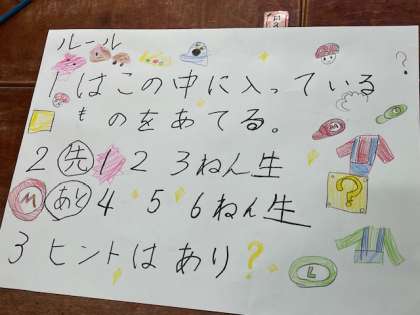 ルール
1 はこの中に入っている
ものをあてる。
2 先 1 2 3ねん生
M あと 4 5 6ねん生
3 ヒントは あり?
?
?
L